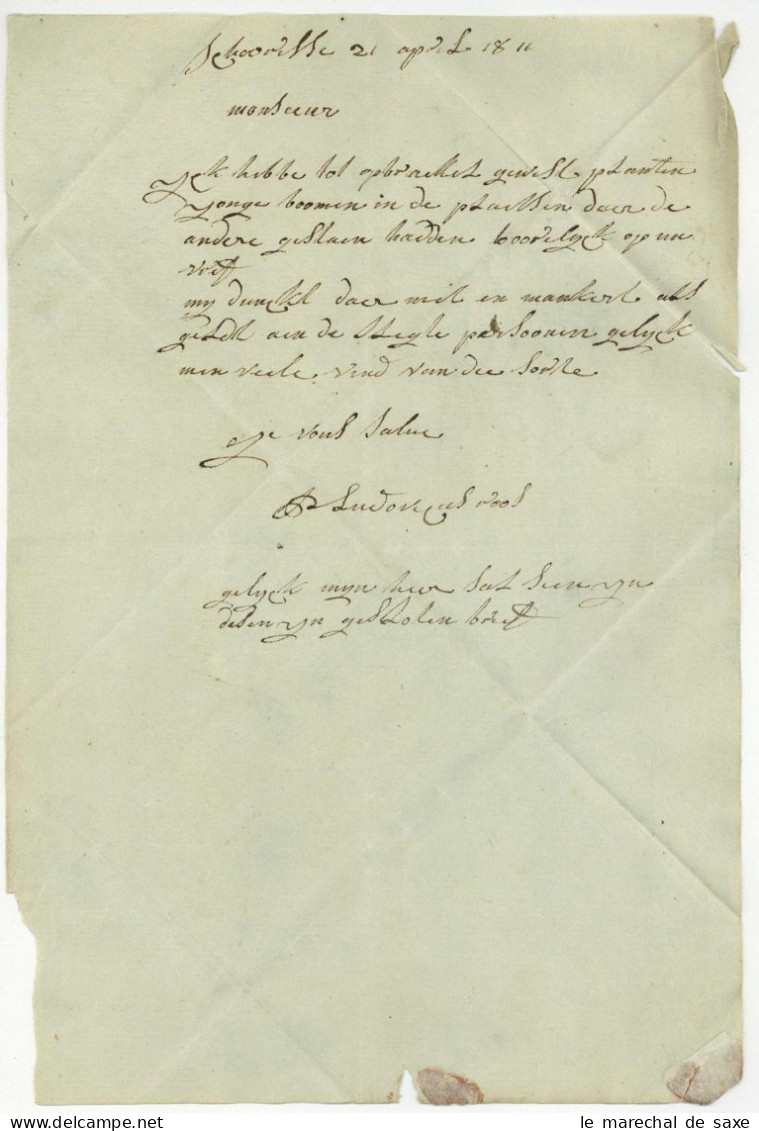 Schoorisse 21 april 1811
monsieur
Ick hebbe tot opbrackel gewest planten
jonge boomen in de plaetsen daer de
andere gestaen hadden op uw
my dunckt daer niet en mankert als
geldt aen de persoonen gelyck
men veele vind van die sorte
Je vous salue
Ludovicus voos
gelyck myn heer sal sien yn
desen yn gesloten brief
le marechal de saxe